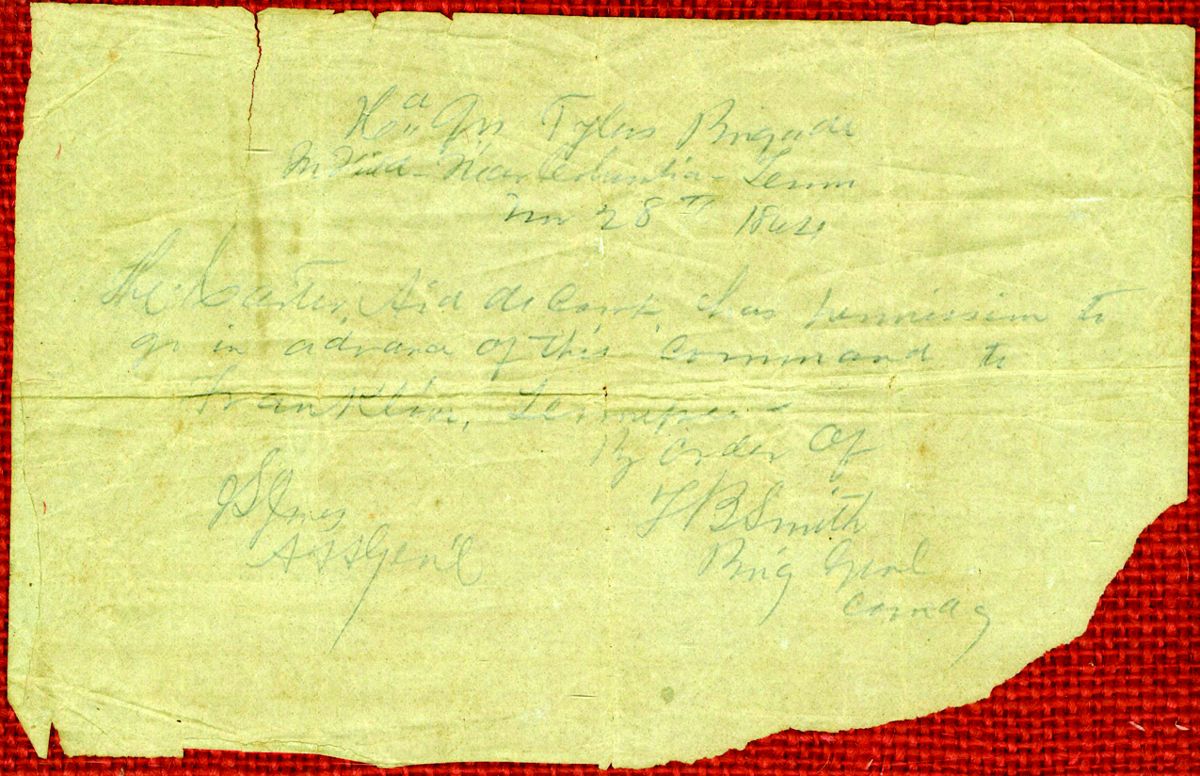 Hd Qrs Tylers Brigade
In Field - Near Columbia - Tenn
Nov 28th 1864
Carter, Aid de Camp has permission to
go in advance of this command to
Franklin, Tennessee
By order of
T B Smith
Brig Genl
Comdg
A A Gen'l